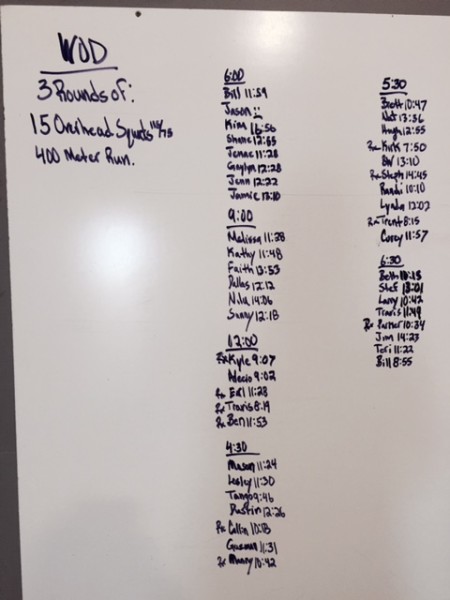 WOD
3 Rounds of:
15 Overhead Squats 115/75
400 Meter Run.
6:00
Bill 11:59
Jason
Kim 16:56
Shane 12:55
Jenae 11:28
12:28
Jenn 12:22
Jamie 13:10
9:00
Melissa 11:38
Kathy 11:48
Faith 13:53
Dallas 12:12
Nila 14:06
Sunny 12:18
12:00
Rx Kyle 9:07
Alecio 9:02
Rx Ed 11:28
Rx Travis 8:19
Rx Ben 11:53
4:30
Mason 11:24
Lesley 11:30
Tango 9:46
Dustin 12:26
Rx Collin 10:13
11:31
Rx Manny 10:42
5:30
Brett 10:47
Nat 13:36
Hugh 12:55
Rx Kirk 7:50
BW 13:10
Rx Steph 14:45
Randi 10:10
Lynda 12:02
Rx Trent 8:15
Corey 11:57
6:30
Beth
Stef 13:01
Larry 10:42
Travis 11:49
Rx Parker 10:34
Jim 14:23
Teri 11:22
Bill 8:55